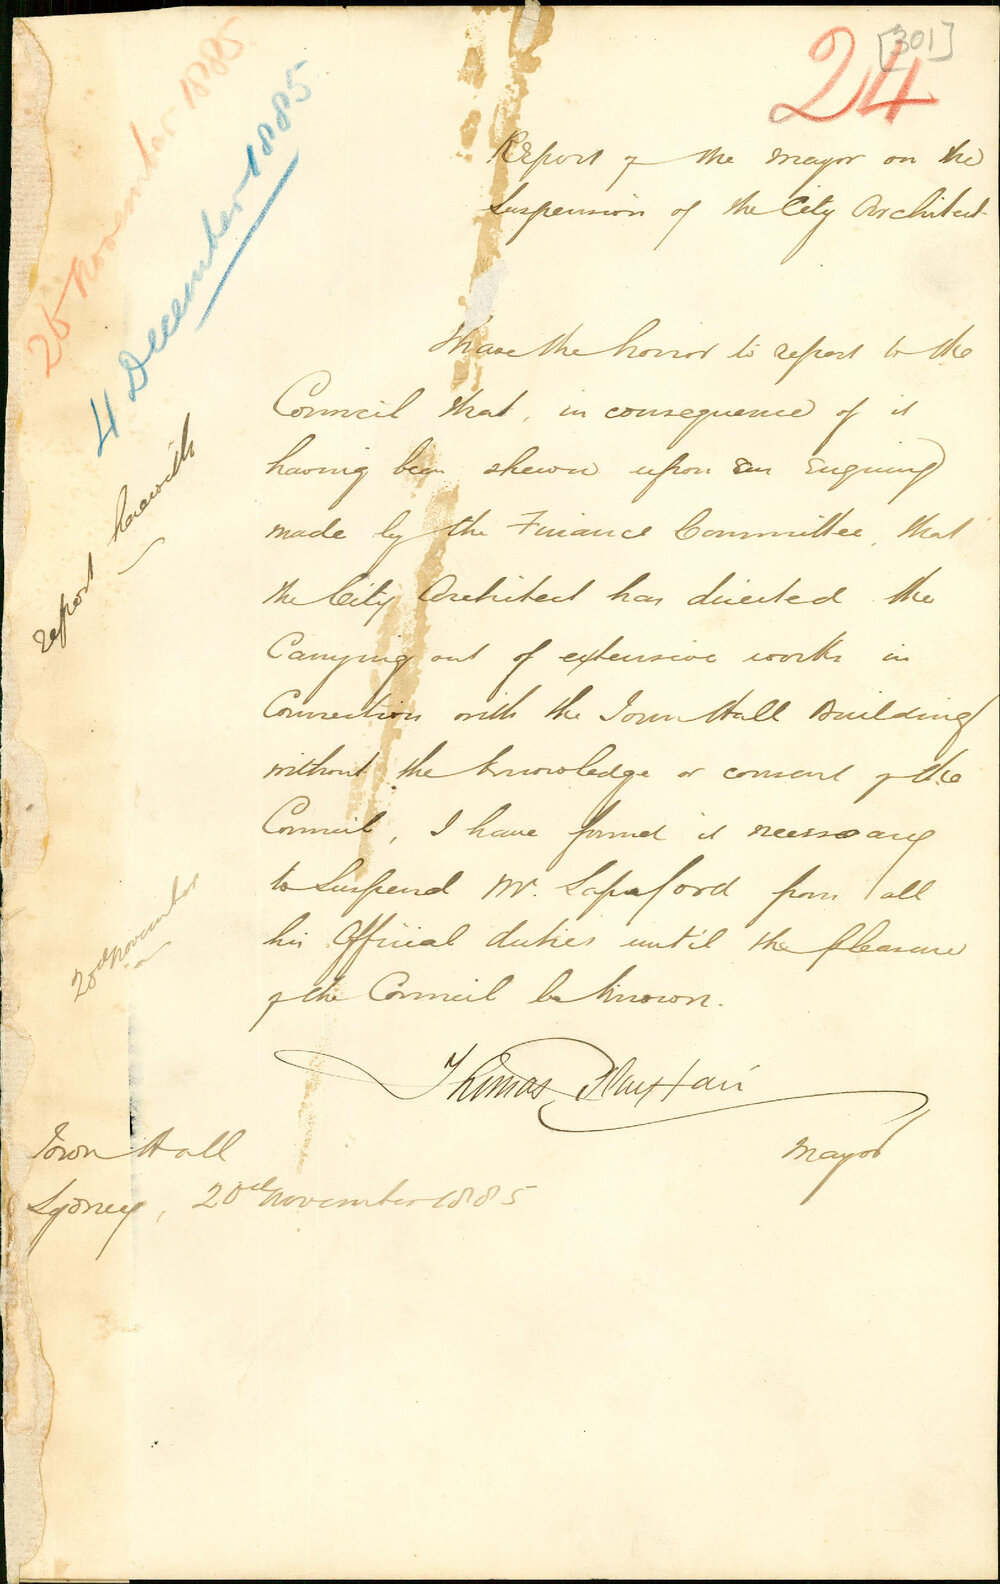 24
[301]
Report of the Mayor on the
Suspension of the City Architect
I have the honor to report to the
Council that, in consequence of it
having been shewn upon an enquiry
made by the Finance Committee, that
the City Architect has directed the
Carrying out of extensive works in
Connection with the Town Hall Building
without the knowledge or consent of the
Council, I have found it necessary
to Suspend Mr. Sapsford from all
his Official duties until the pleasure
of the Council be known.
Thomas Playfair
Mayor
Town Hall
Sydney, 20th November 1885
26 November 1885
4 December 1885
report herewith
20th November